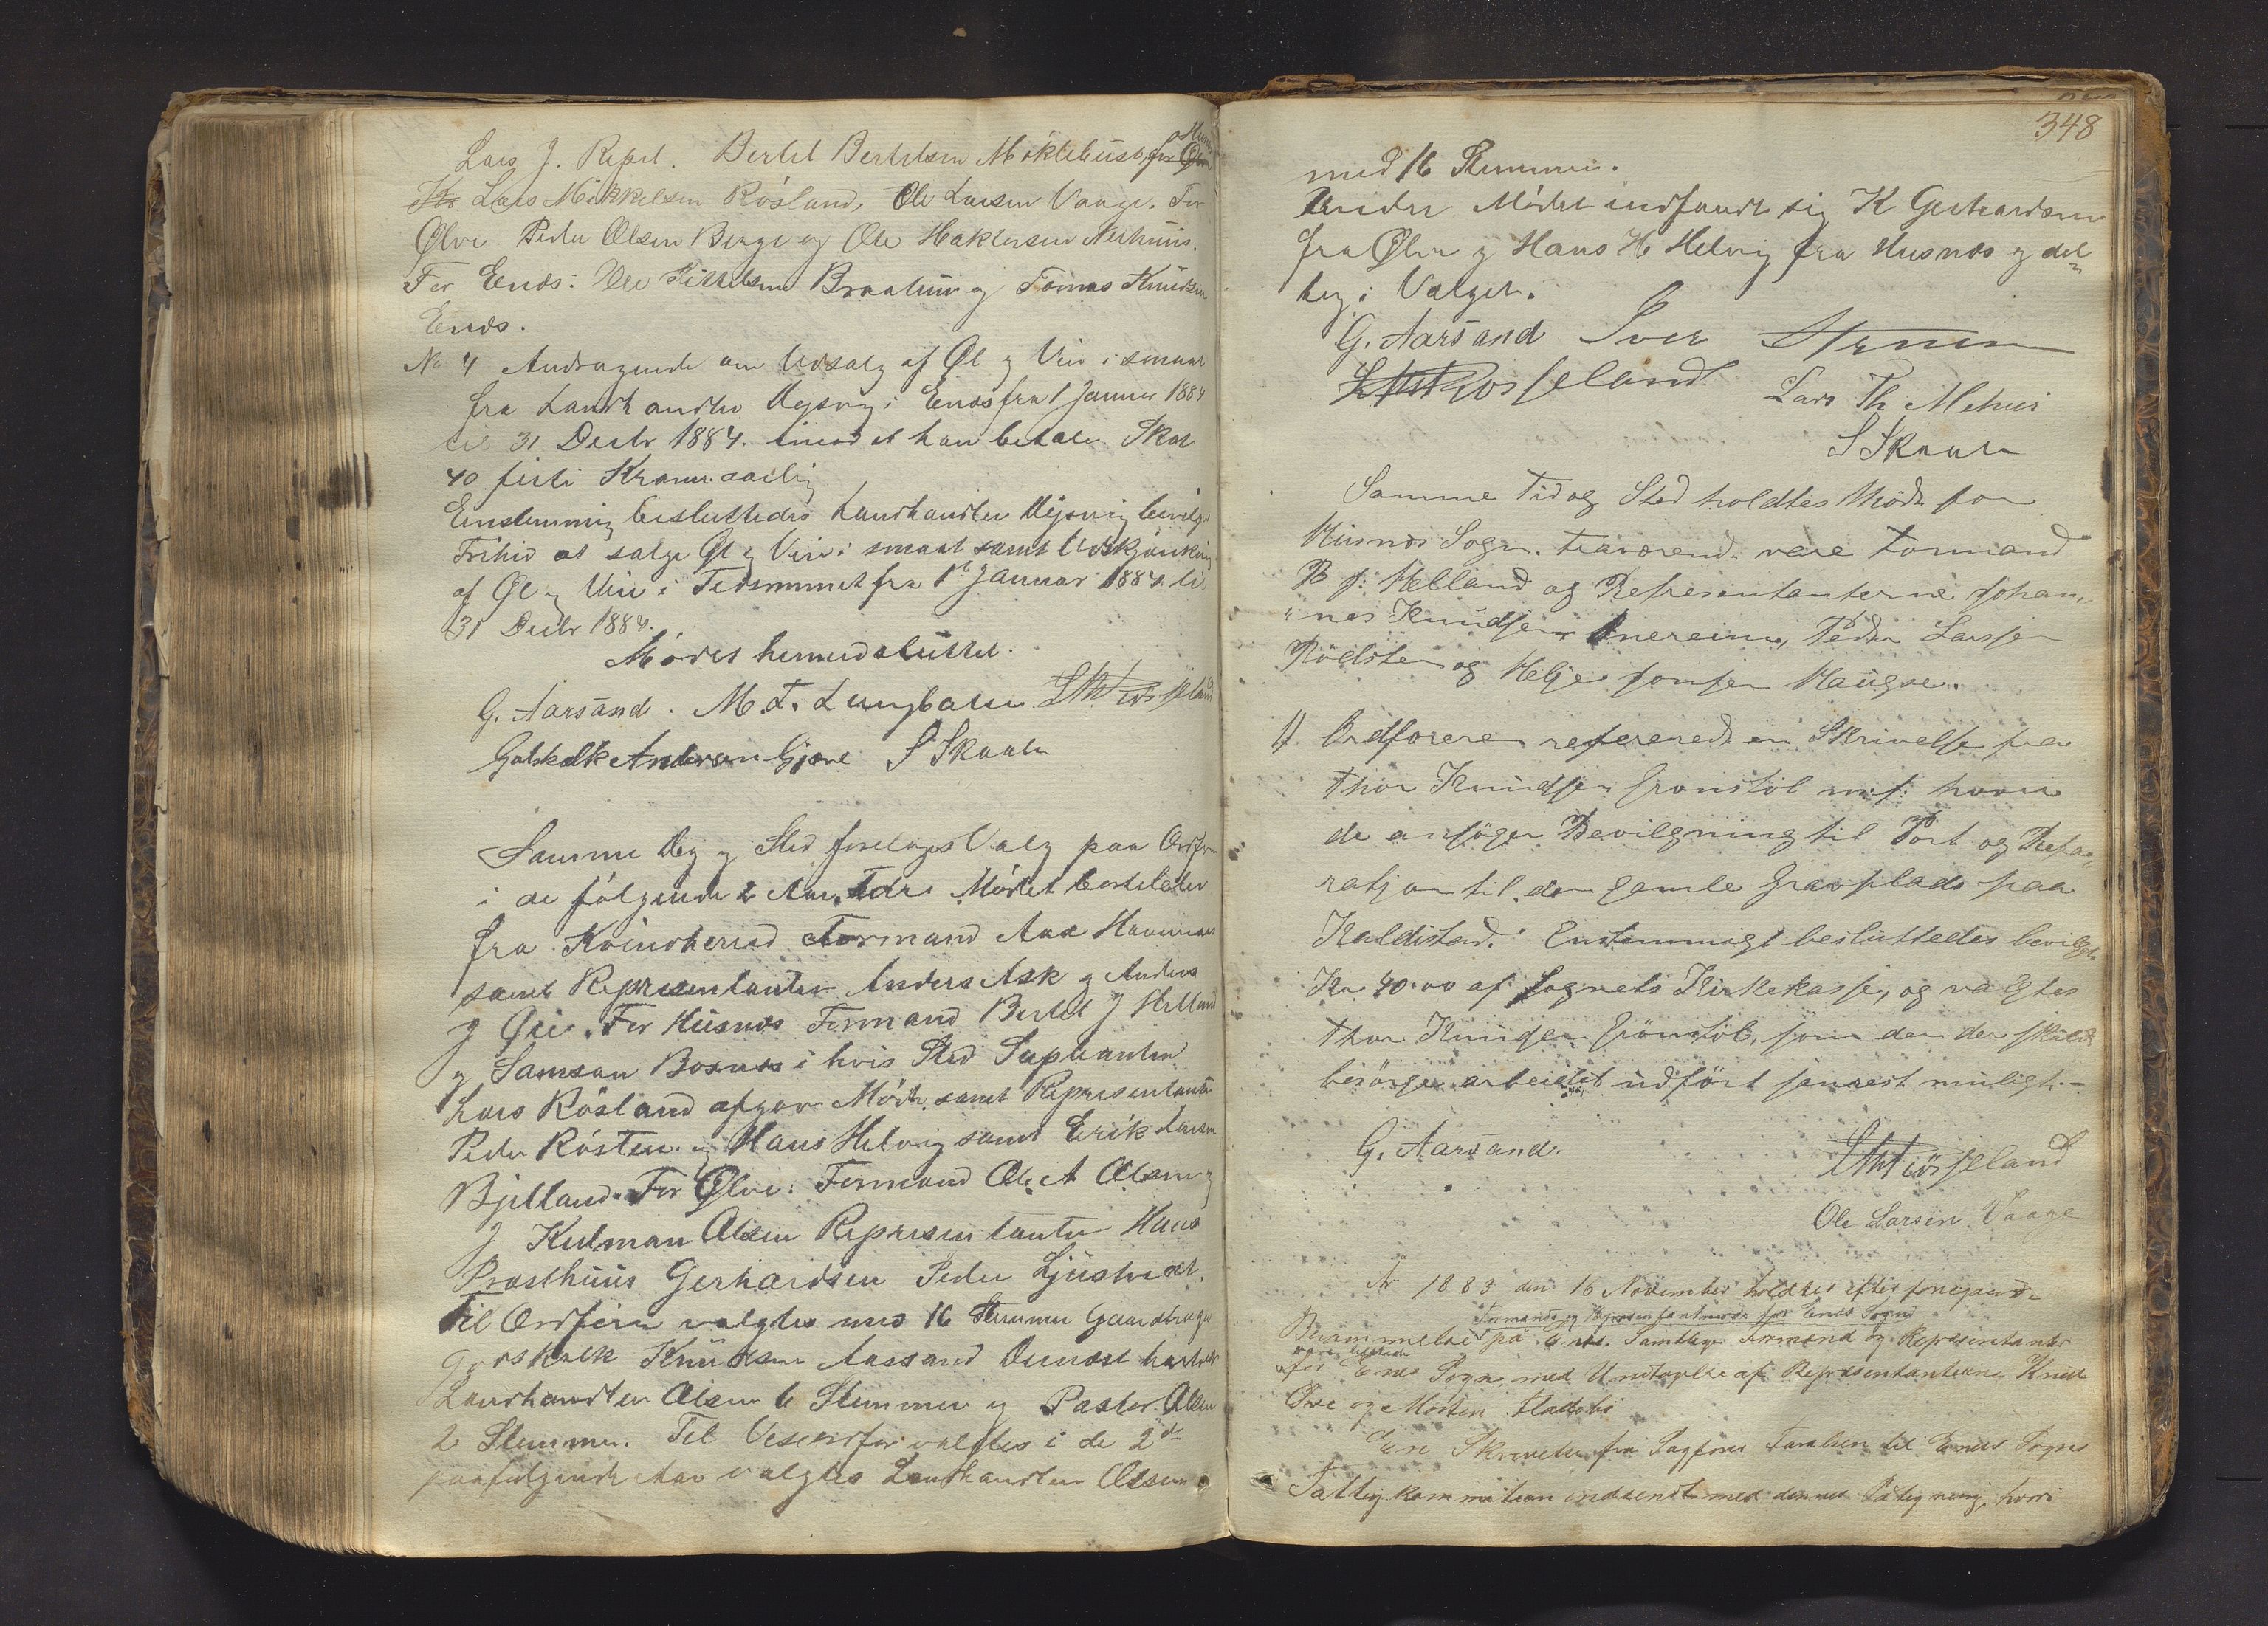 Lars J. Repel. Bertel Bertelsen Möklebust, for Husnes
Lars Mikkelsen Rösland, Ole Larsen Vaage. For
Ølve Peder Olsen Berge og Ole Haktorsen Nerhuus.
For Enæs: Ole Tittelsen Braatun og Tomas Knudsen
Enæs.
No 4 Andragende om Udsalg af Øl og Vin i smaat
fra Landhandler i Enæs fra 1 Januar 1884
til 31 Decbr 1884. imod at han betaler Skat
40 firti Kroner aarlig
Enstemmig besluttedes Landhandler bevilges
Frihed at sælge Øl og Vin i smaat samt Udskjænkning
af Øl og Vin i Tidsrummet fra 1te Januar 1884 til
31 Decbr 1884.
Mödet hermed sluttet.
G. Aarsand. M. T. Ljungbalen
Gotskalk Andersen Gjerre S Skaale
Samme Dag og Sted foretoges Valg paa Ordfører
i de følgende 2 Aar. Till Mödet beskikkede
fra Kvindherred Formand Aax Hammer
samt Representanter Anders Ask og Anders
J Øie. For Husnæs Formand Bertel J Helland
og Samson Bosnæs i hvis Sted Supleanten
Lars Rösland afgav Möde samt Representanter
Peder Rösten og Hans Helvig samt Erik Larsen
Bjelland. For Ølve: Formand Ole A Olsen og
J Kulman Olsen Representanter Hans
Præsthuus Gerhardsen Peder Ljustveit.
Til Ordfører valgtes med 16 Stemmer Gaardbruger
Gotskalk Knudsen Aarsand Dernæst havde
Landhandler Olsen 6 Stemmer og Pastor Olsen
2 Stemmer. Til Viseordfør valgtes i de 2de
paafølgende Aar valgtes Landhandler Olsen
348
med 16 Stemmer.
Under Mödet indfandt sig K Gerhardsen
fra Ølve og Hans H. Helvig fra Husnæs og del
tog i Valget.
G. Aarsand Iver
Lars Th Mehus
S Skaale
Samme Tid og Sted holdtes Möde for
Husnæs Sogn. Tilværende vare Formand
B J. Helland og Representanterne Johan
nes Knudsen Unereim, Peder Larssen
Rödsten og Helje Jonsen Haugse.
1) Ordföreren refererede en Skrivelse fra
Thor Knudsen Grönstöl m.f. hvori
de ansöger Bevilgning til Port og Repa
ratjon til den gamle Gravplads paa
Kaldestad. Enstemmigt besluttedes bevilget
Kr 40.00 af Sognets Kirkekasse, og valgtes
Thor Knudsen Grönstöl, som den der skulde
besörge arbeidet udfört snarest muligt.
G. Aarsand.
Ole Larsen Vaage
År 1883 den 16 November holdtes efter foregaaende
Formands og Representantmøde for Enæs Sogn
Berammelse på Enæs. Samtlige Formænd og Repræsentanter
vare tilstede
for Enæs Sogn med Undtagelse af Repræsentanterne Knud
Øvre og Morten Fladebø
En Skrivelse fra Sagfører til Enæs Sogns
Fattigkommission indsendt med dennes Påtegning, hvori